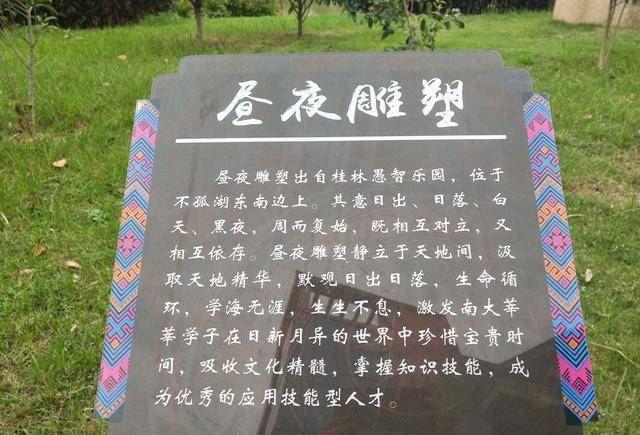 昼夜雕塑
昼夜雕塑出自桂林愚智乐园，位于
不孤湖东南边上。其意日出、日落、白
天、黑夜，周而复始，既相互对立，又
相互依存。昼夜雕塑静立于天地间，汲
取天地精华，默观日出日落，生命循
环，学海无涯，生生不息，激发南大莘
莘学子在日新月异的世界中珍惜宝贵时
间，吸收文化精髓，掌握知识技能，成
为优秀的应用技能型人才。